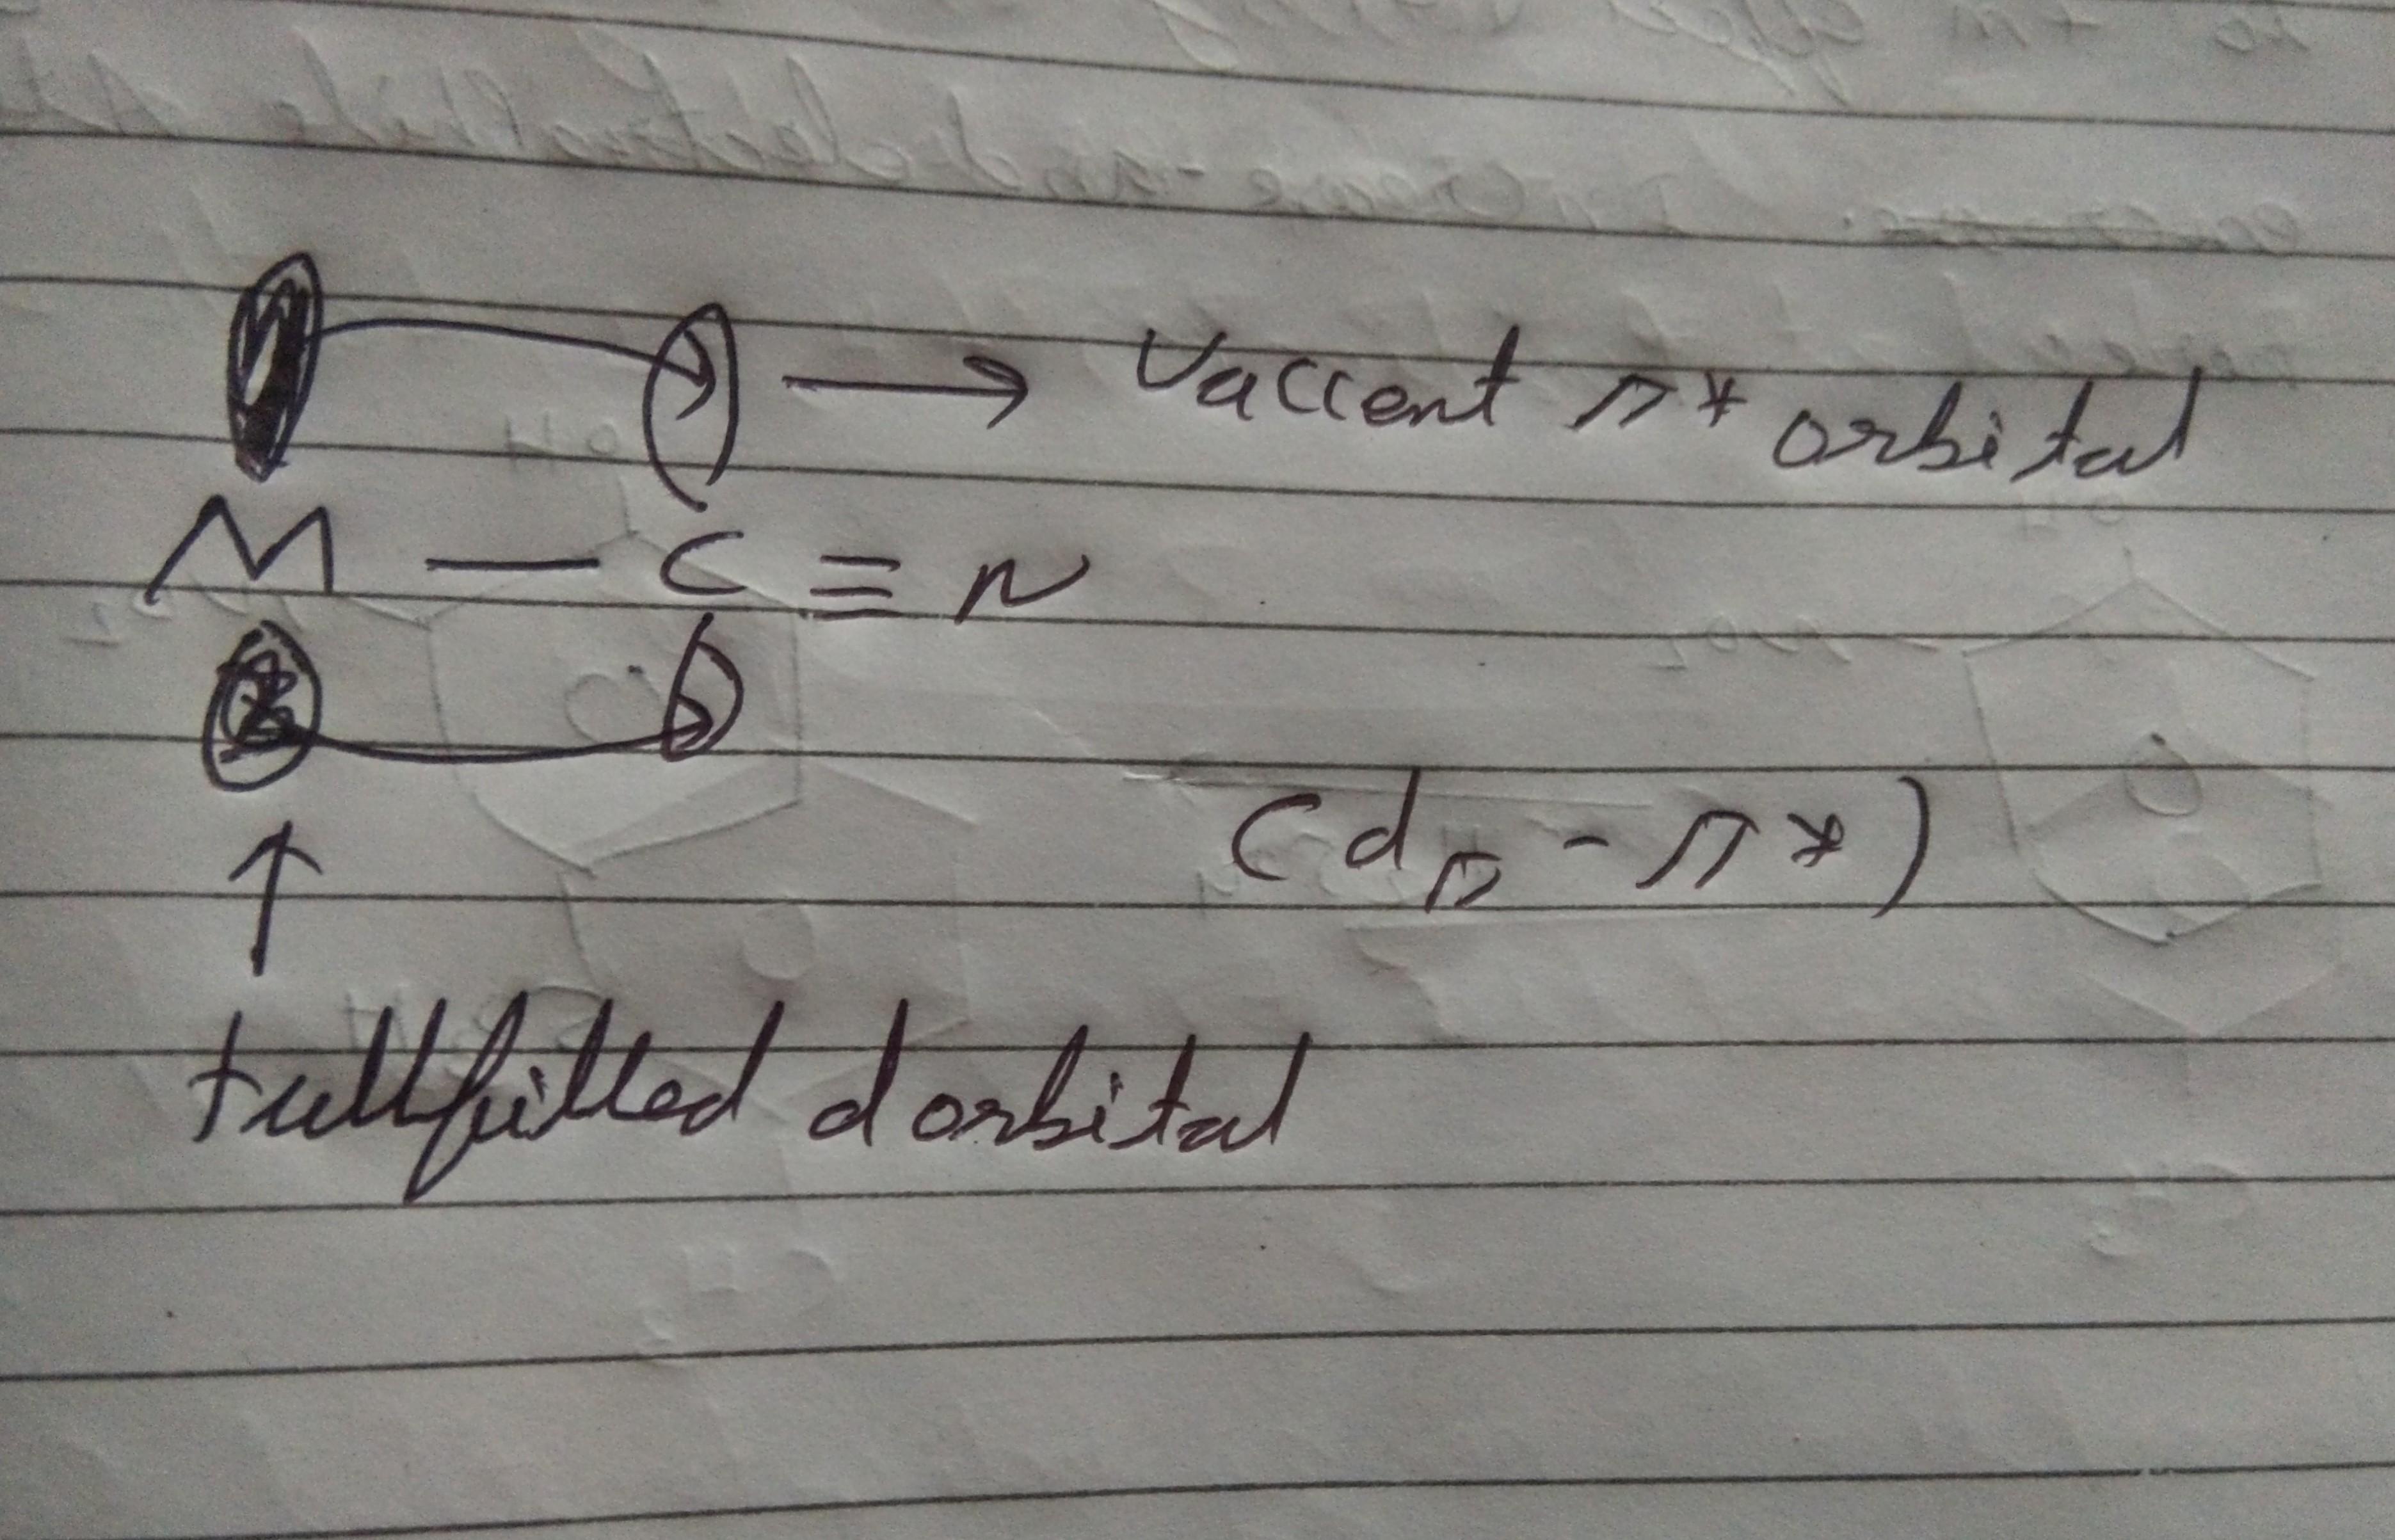 Vaccent π* orbital
M — C ≡ N
(dπ - π*)
fullfilled d orbital